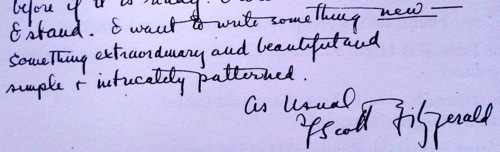 before if it is
& stand. I want to write something new —
something extraordinary and beautiful and
simple + intricately patterned.
As Usual
F Scott Fitzgerald